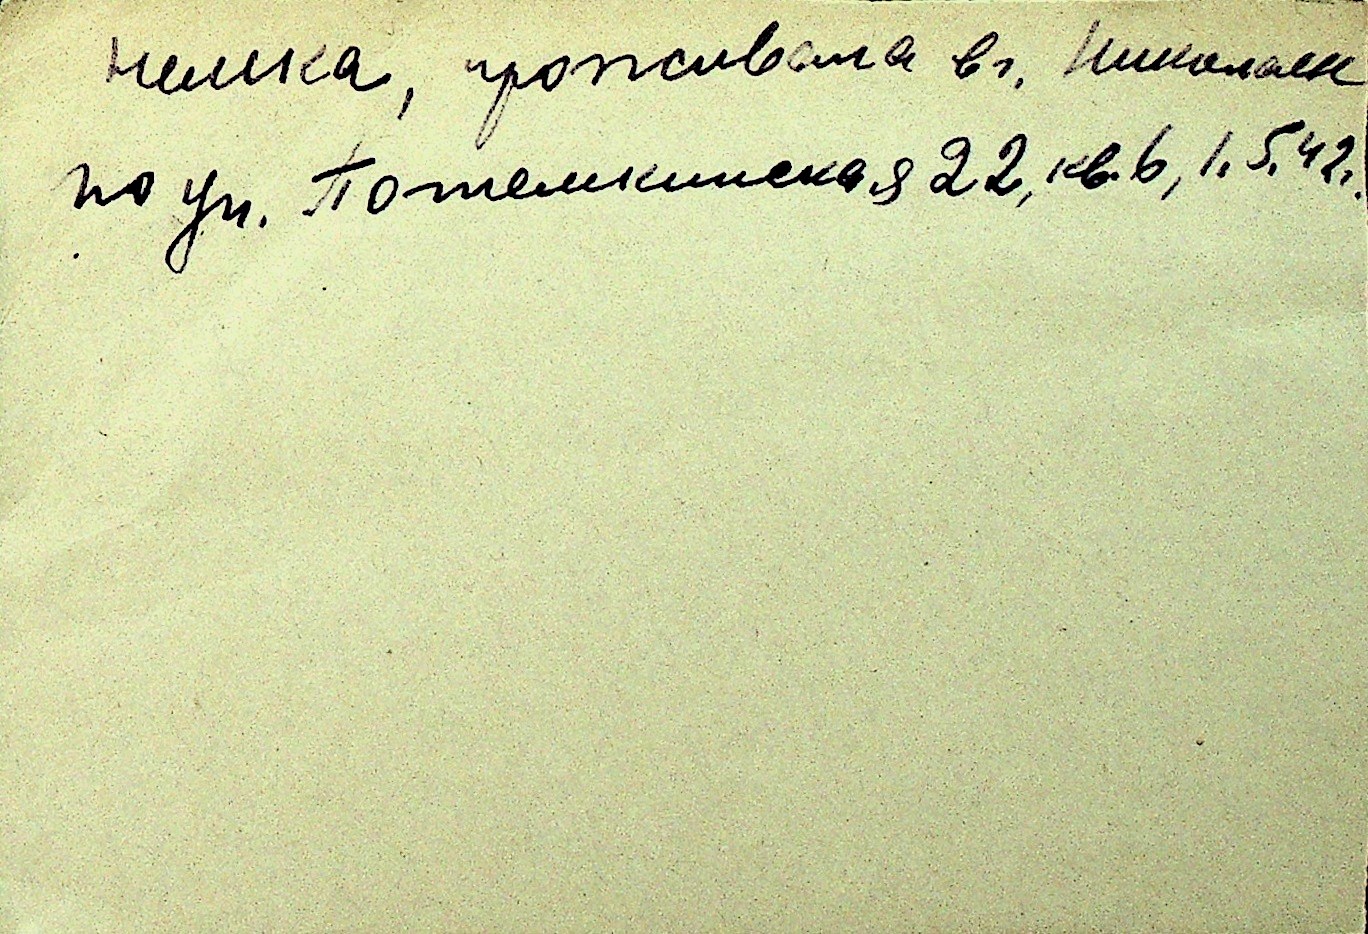 немка, проживала в г. Николаев
по ул. Потемкинская 22, кв. 6, 1.5.42.